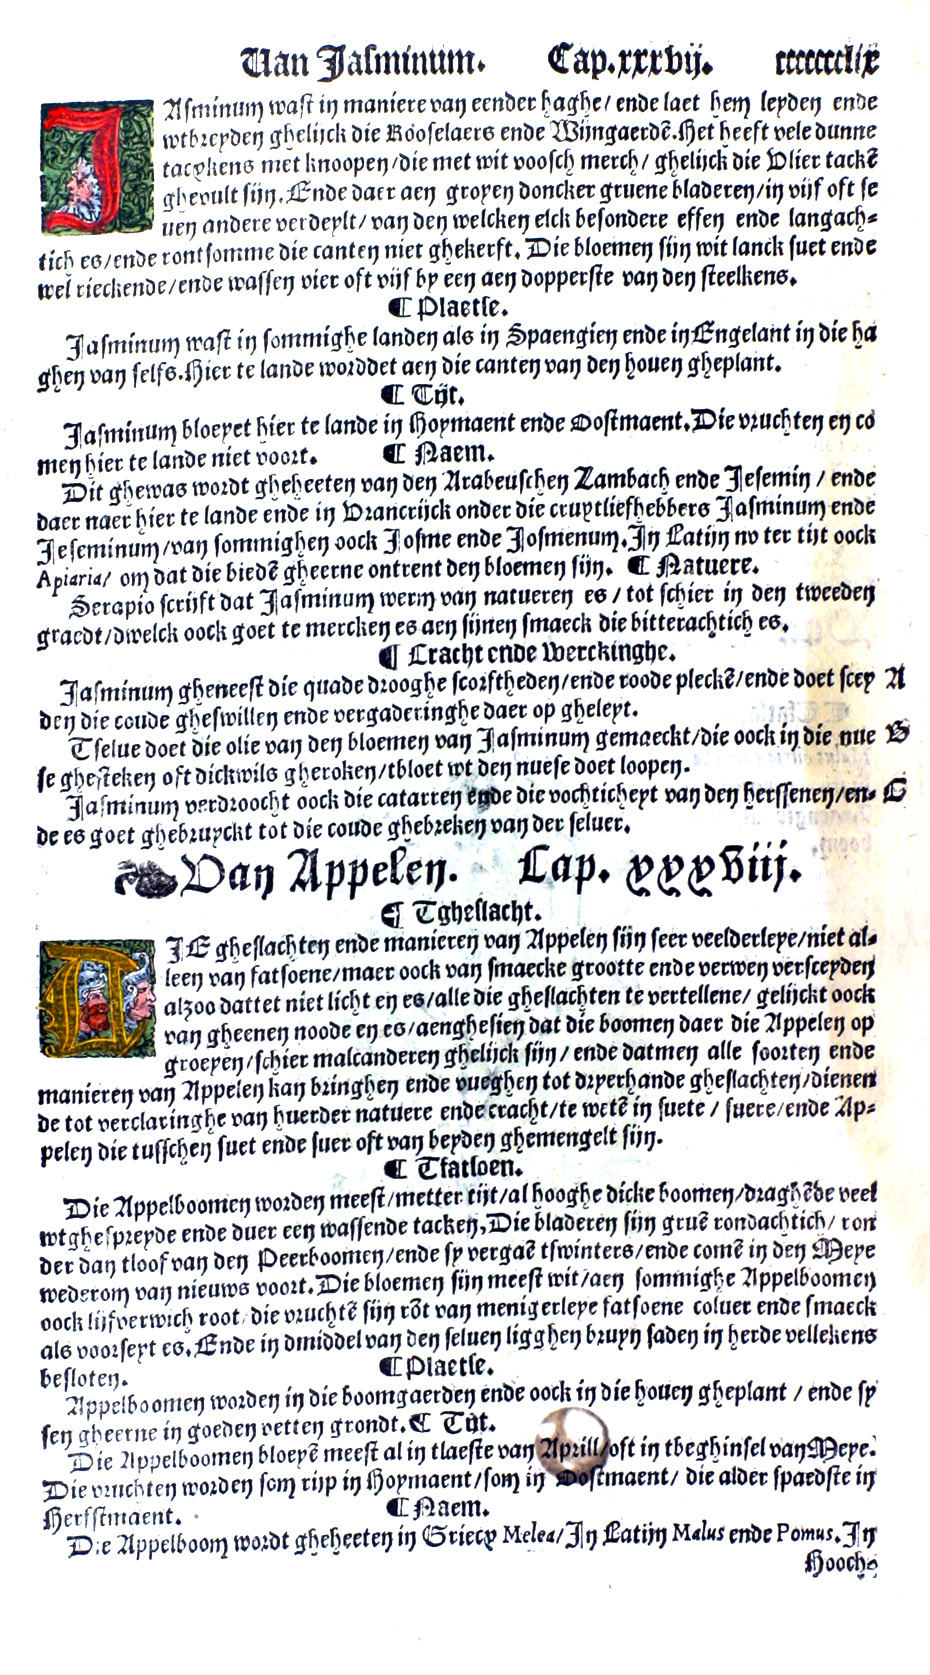 Van Jasminum. Cap.xxxvij. ccccccclix
JAsminum wast in maniere van eender haghe/ ende laet hem leyden ende
wtbreyden ghelijck die Rooselaers ende Wijngaerdē.Het heeft vele dunne
tacxkens met knoopen/die met wit voosch merch/ ghelijck die Vlier tackē
ghevult sijn.Ende daer aen groyen doncker gruene bladeren/in vijf oft se
uen andere verdeylt/ van den welcken elck besondere effen ende langach-
tich es/ende rontsomme die canten niet ghekerft. Die bloemen sijn wit lanck suet ende
wel rieckende/ende wassen vier oft vijf by een aen dopperste van den steelkens.
¶ Plaetse.
Jasminum wast in sommighe landen als in Spaengien ende in Engelant in die ha
ghen van selfs.Hier te lande worddet aen die canten van den houen gheplant.
¶ Tijt.
Jasminum bloeyet hier te lande in Hoymaent ende Oostmaent.Die vruchten en co
men hier te lande niet voort. ¶ Naem.
Dit ghewas wordt gheheeten van den Arabeuschen Zambach ende Jesemin / ende
daer naer hier te lande ende in Vrancrijck onder die cruytliefhebbers Jasminum ende
Jeseminum/van sommighen oock Josme ende Josmenum.Jn Latijn nv ter tijt oock
Apiaria/ om dat die biedē gheerne ontrent den bloemen sijn. ¶ Natuere.
Serapio scrijft dat Jasminum werm van natueren es / tot schier in den tweeden
graedt/dwelck oock goet te mercken es aen sijnen smaeck die bitterachtich es.
¶ Cracht ende Werckinghe.
Jasminum gheneest die quade drooghe scorftheden/ende roode pleckē/ende doet scey A
den die coude gheswillen ende vergaderinghe daer op gheleyt.
Tselue doet die olie van den bloemen van Jasminum gemaeckt/die oock in die nue B
se ghesteken oft dickwils gheroken/tbloet wt den nuese doet loopen.
Jasminum verdroocht oock die catarren ende die vochticheyt van den herssenen/en- C
de es goet ghebruyckt tot die coude ghebreken van der seluer.
Van Appelen. Cap. xxxviij.
¶ Tgheslacht.
DJE gheslachten ende manieren van Appelen sijn seer veelderleye/niet al-
leen van fatsoene/maer oock van smaecke grootte ende verwen versceyden
alzoo dattet niet licht en es/alle die gheslachten te vertellene/ gelijckt oock
van gheenen noode en es/aenghesien dat die boomen daer die Appelen op
groeyen/schier malcanderen ghelijck sijn/ ende datmen alle soorten ende
manieren van Appelen kan bringhen ende vueghen tot dryerhande gheslachten/dienen
de tot verclaringhe van huerder natuere ende cracht/te wetē in suete / suere/ende Ap-
pelen die tusschen suet ende suer oft van beyden ghemengelt sijn.
¶ Tfatsoen.
Die Appelboomen worden meest/metter tijt/al hooghe dicke boomen/draghēde veel
wtghespreyde ende duer een wassende tacken,Die bladeren sijn gruē rondachtich/ ron
der dan tloof van den Peerboomen/ende sy vergaē tswinters/ende comē in den Meye
wederom van nieuws voort.Die bloemen sijn meest wit/aen sommighe Appelboomen
oock lijfverwich root/die vruchtē sijn rōt van menigerleye fatsoene coluer ende smaeck
als voorseyt es.Ende in dmiddel van den seluen ligghen bruyn saden in herde vellekens
besloten. ¶ Plaetse.
Appelboomen worden in die boomgaerden ende oock in die houen gheplant / ende sy
sen gheerne in goeden vetten grondt.¶ Tijt.
Die Appelboomen bloeyē meest al in tlaeste van Aprill/oft in tbeghinsel van Meye.
Die vruchten worden som rijp in Hoymaent/som in Oostmaent/ die alder spaedste in
Herfstmaent.
¶ Naem.
Die Appelboom wordt gheheeten in Griecx Melea/Jn Latijn Malus ende Pomus.Jn
Hooch-